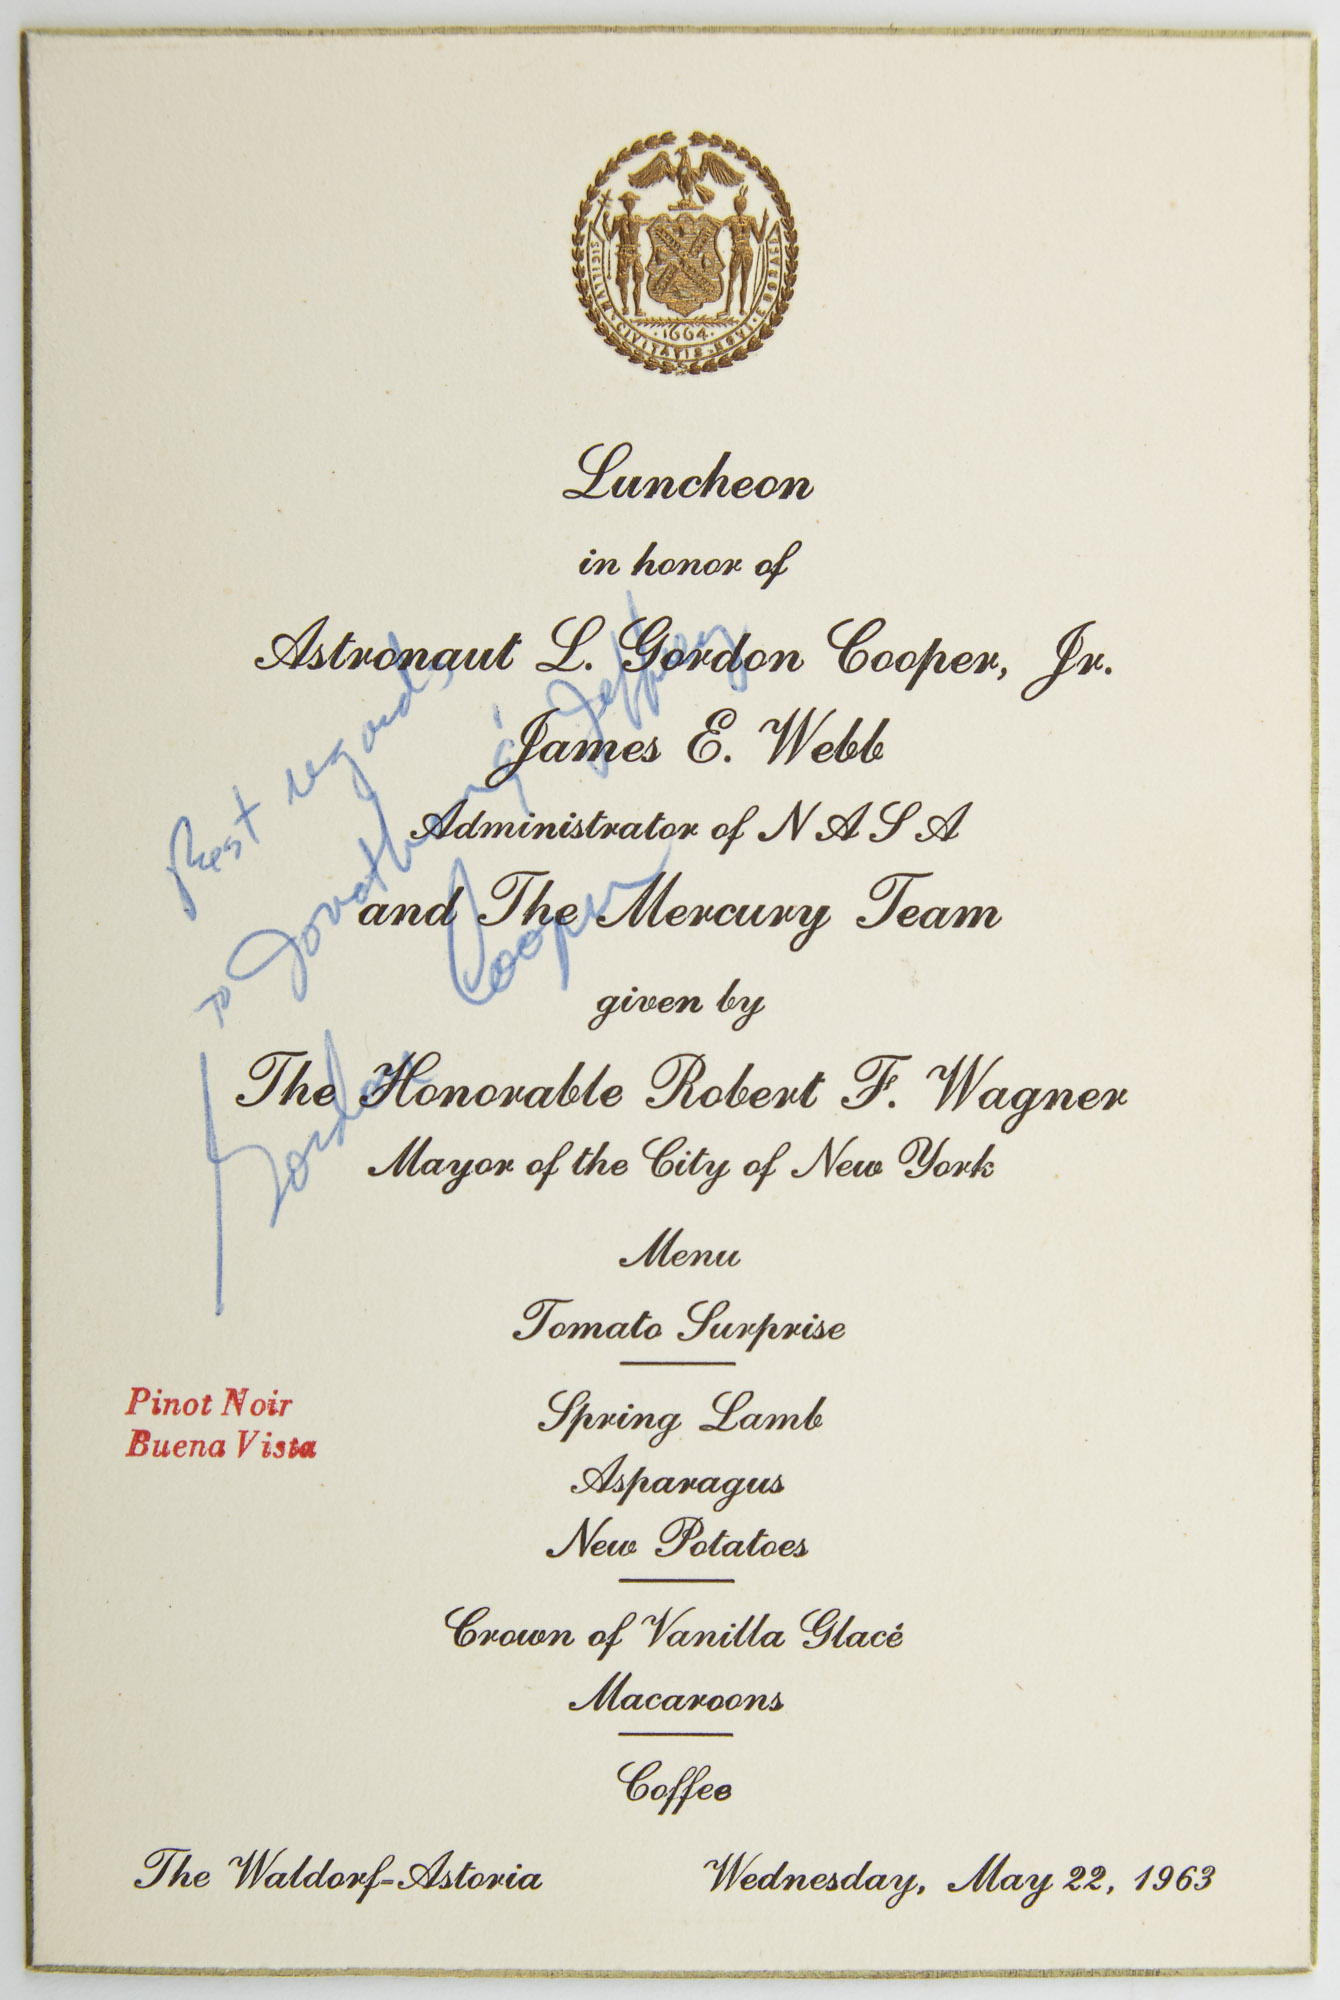 SIGILLUM · CIVITATIS · NOVI · EBORACI
· 1664 ·
Luncheon
in honor of
Astronaut L. Gordon Cooper, Jr.
James E. Webb
Administrator of NASA
and The Mercury Team
given by
The Honorable Robert F. Wagner
Mayor of the City of New York
Best regards,
to Dorothy & Jeffrey
Gordon Cooper
Menu
Tomato Surprise
Pinot Noir
Buena Vista
Spring Lamb
Asparagus
New Potatoes
Crown of Vanilla Glacé
Macaroons
Coffee
The Waldorf-Astoria
Wednesday, May 22, 1963